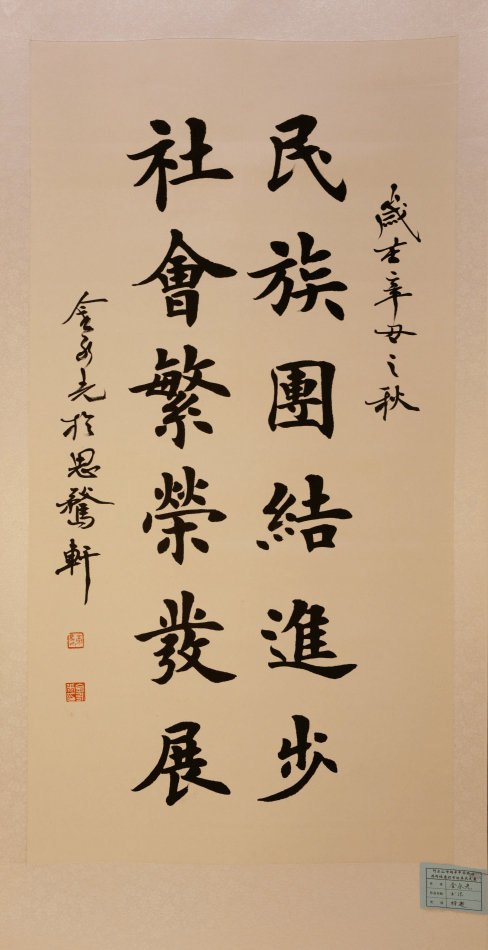 歲在辛丑之秋
民族團結進步
社會繁榮發展
金永光於思騖軒
金永光